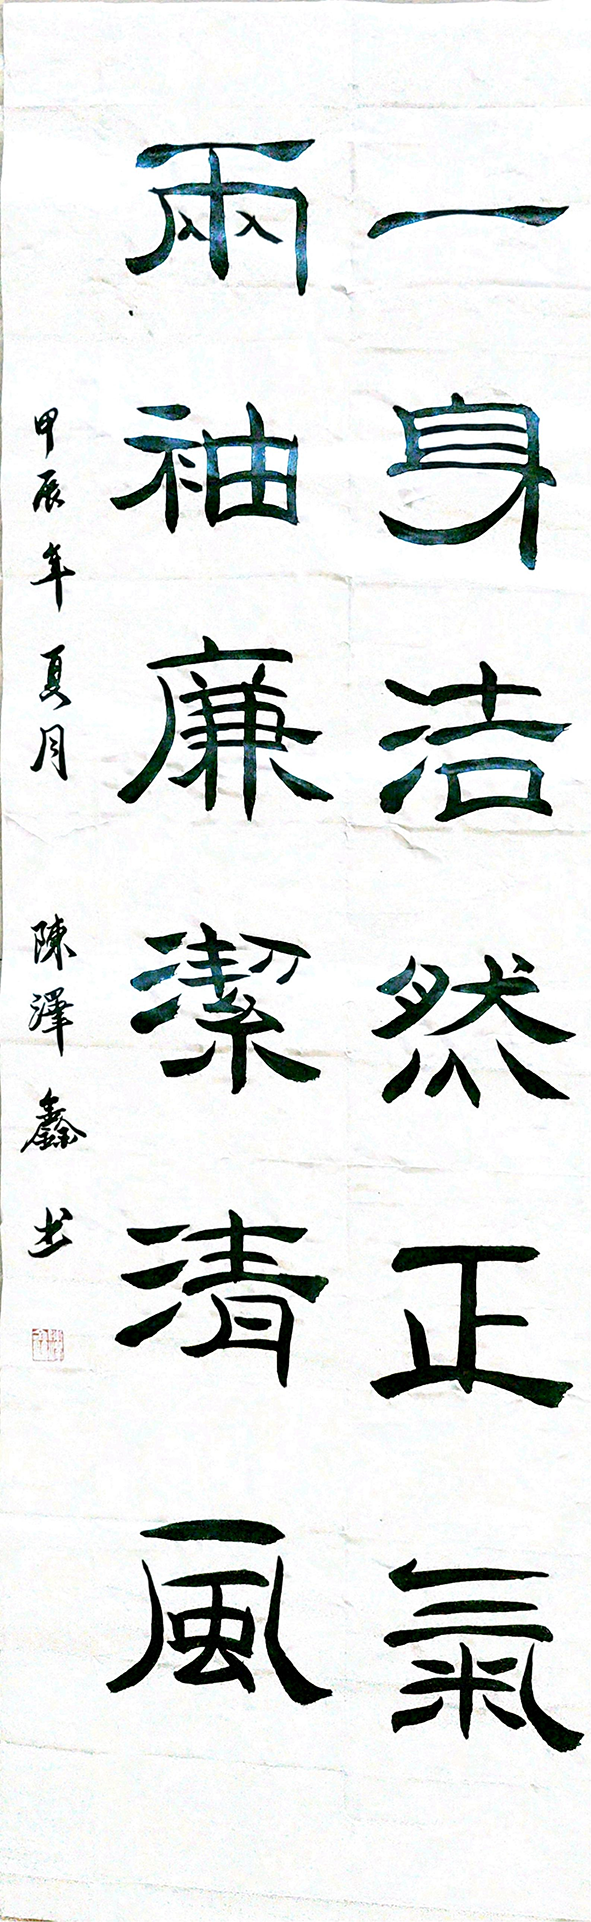 一身洁然正氣
兩袖廉潔清風
甲辰年夏月 陳澤鑫书